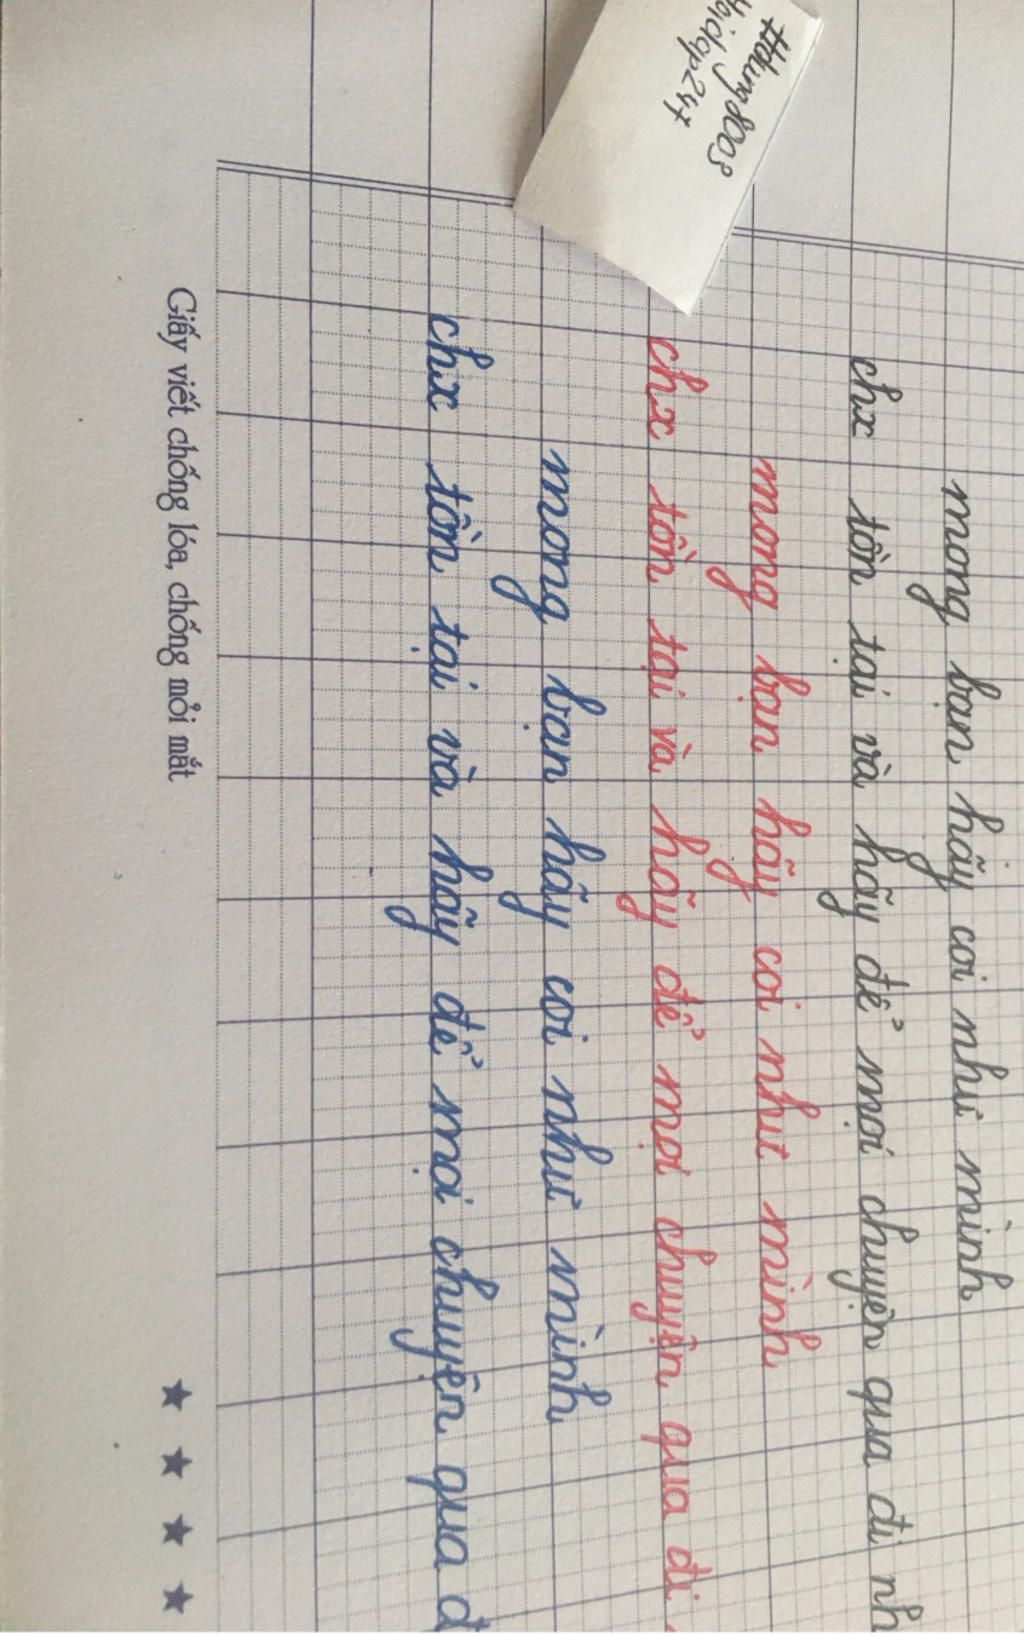 mong bạn hãy coi như mình
chx tồn tại và hãy để mọi chuyện qua đi nh
mong bạn hãy coi như mình
chx tồn tại và hãy để mọi chuyện qua đi
mong bạn hãy coi như mình
chx tồn tại và hãy để mọi chuyện qua đ
Giấy viết chống lóa, chống mỏi mắt